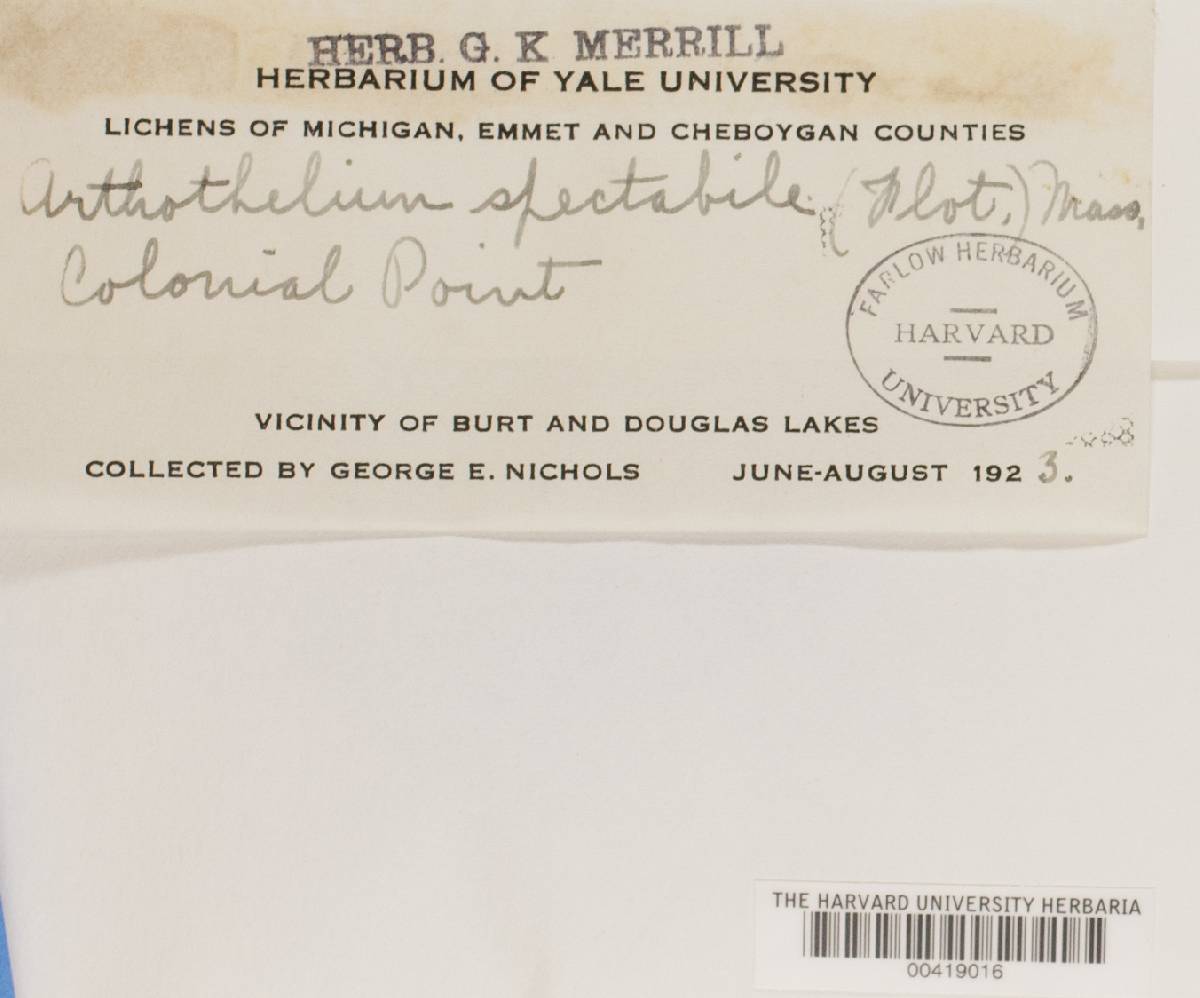 HERB. G. K. MERRILL
HERBARIUM OF YALE UNIVERSITY
LICHENS OF MICHIGAN, EMMET AND CHEBOYGAN COUNTIES
Arthothelium spectabile (Flot.) Mass.
Colonial Point
FARLOW HERBARIUM
HARVARD
UNIVERSITY
VICINITY OF BURT AND DOUGLAS LAKES
COLLECTED BY GEORGE E. NICHOLS JUNE-AUGUST 1923.
THE HARVARD UNIVERSITY HERBARIA
00419016